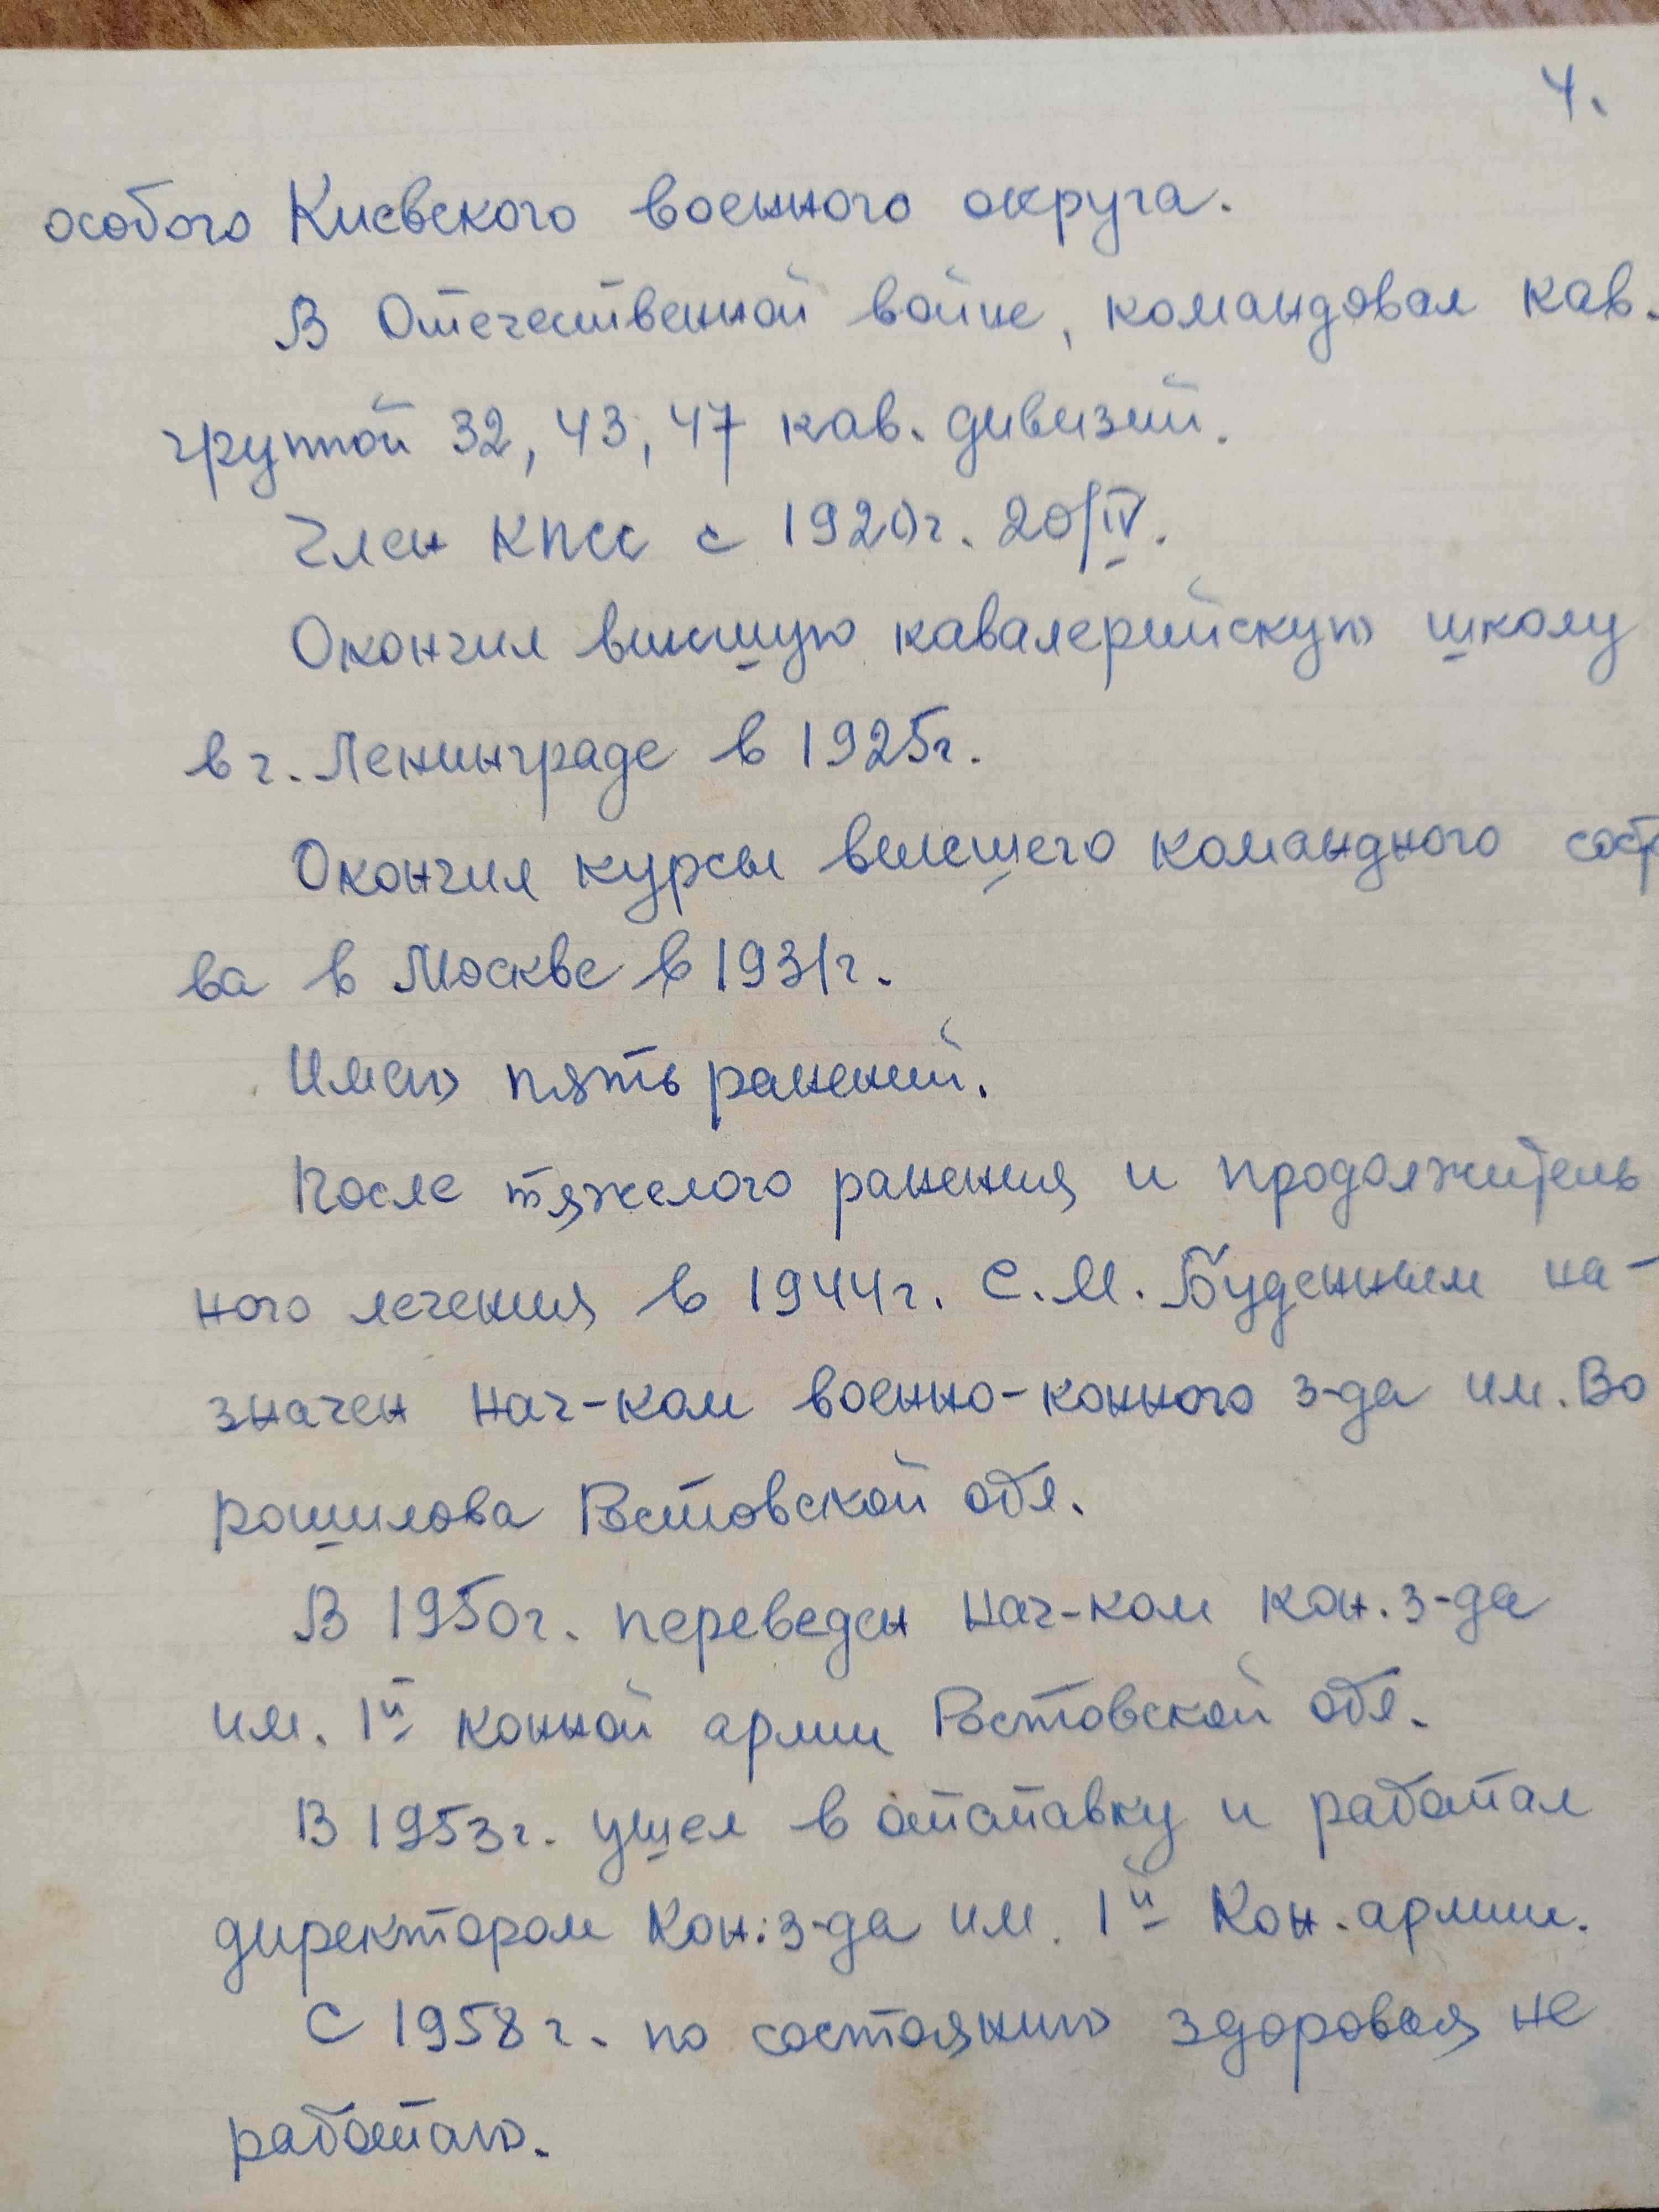 4.
особого Киевского военного округа.
В Отечественной войне, командовал кав.
группой 32, 43, 47 кав. дивизий.
Член КПСС с 1920г. 20/IV.
Окончил высшую кавалерийскую школу
в г. Ленинграде в 1925г.
Окончил курсы высшего командного сост
ва в Москве в 1931г.
Имею пять ранений.
После тяжелого ранения и продолжитель
ного лечения в 1944г. С.М. Буденным на-
значен нач-ком военно-конного з-да им. Во
рошилова Ростовской обл.
В 1950г. переведен нач-ком кон. з-да
им. 1й конной армии Ростовской обл.
В 1953г. ушел в отставку и работал
директором Кон. з-да им. 1й Кон. армии.
С 1958г. по состоянию здоровья не
работаю.